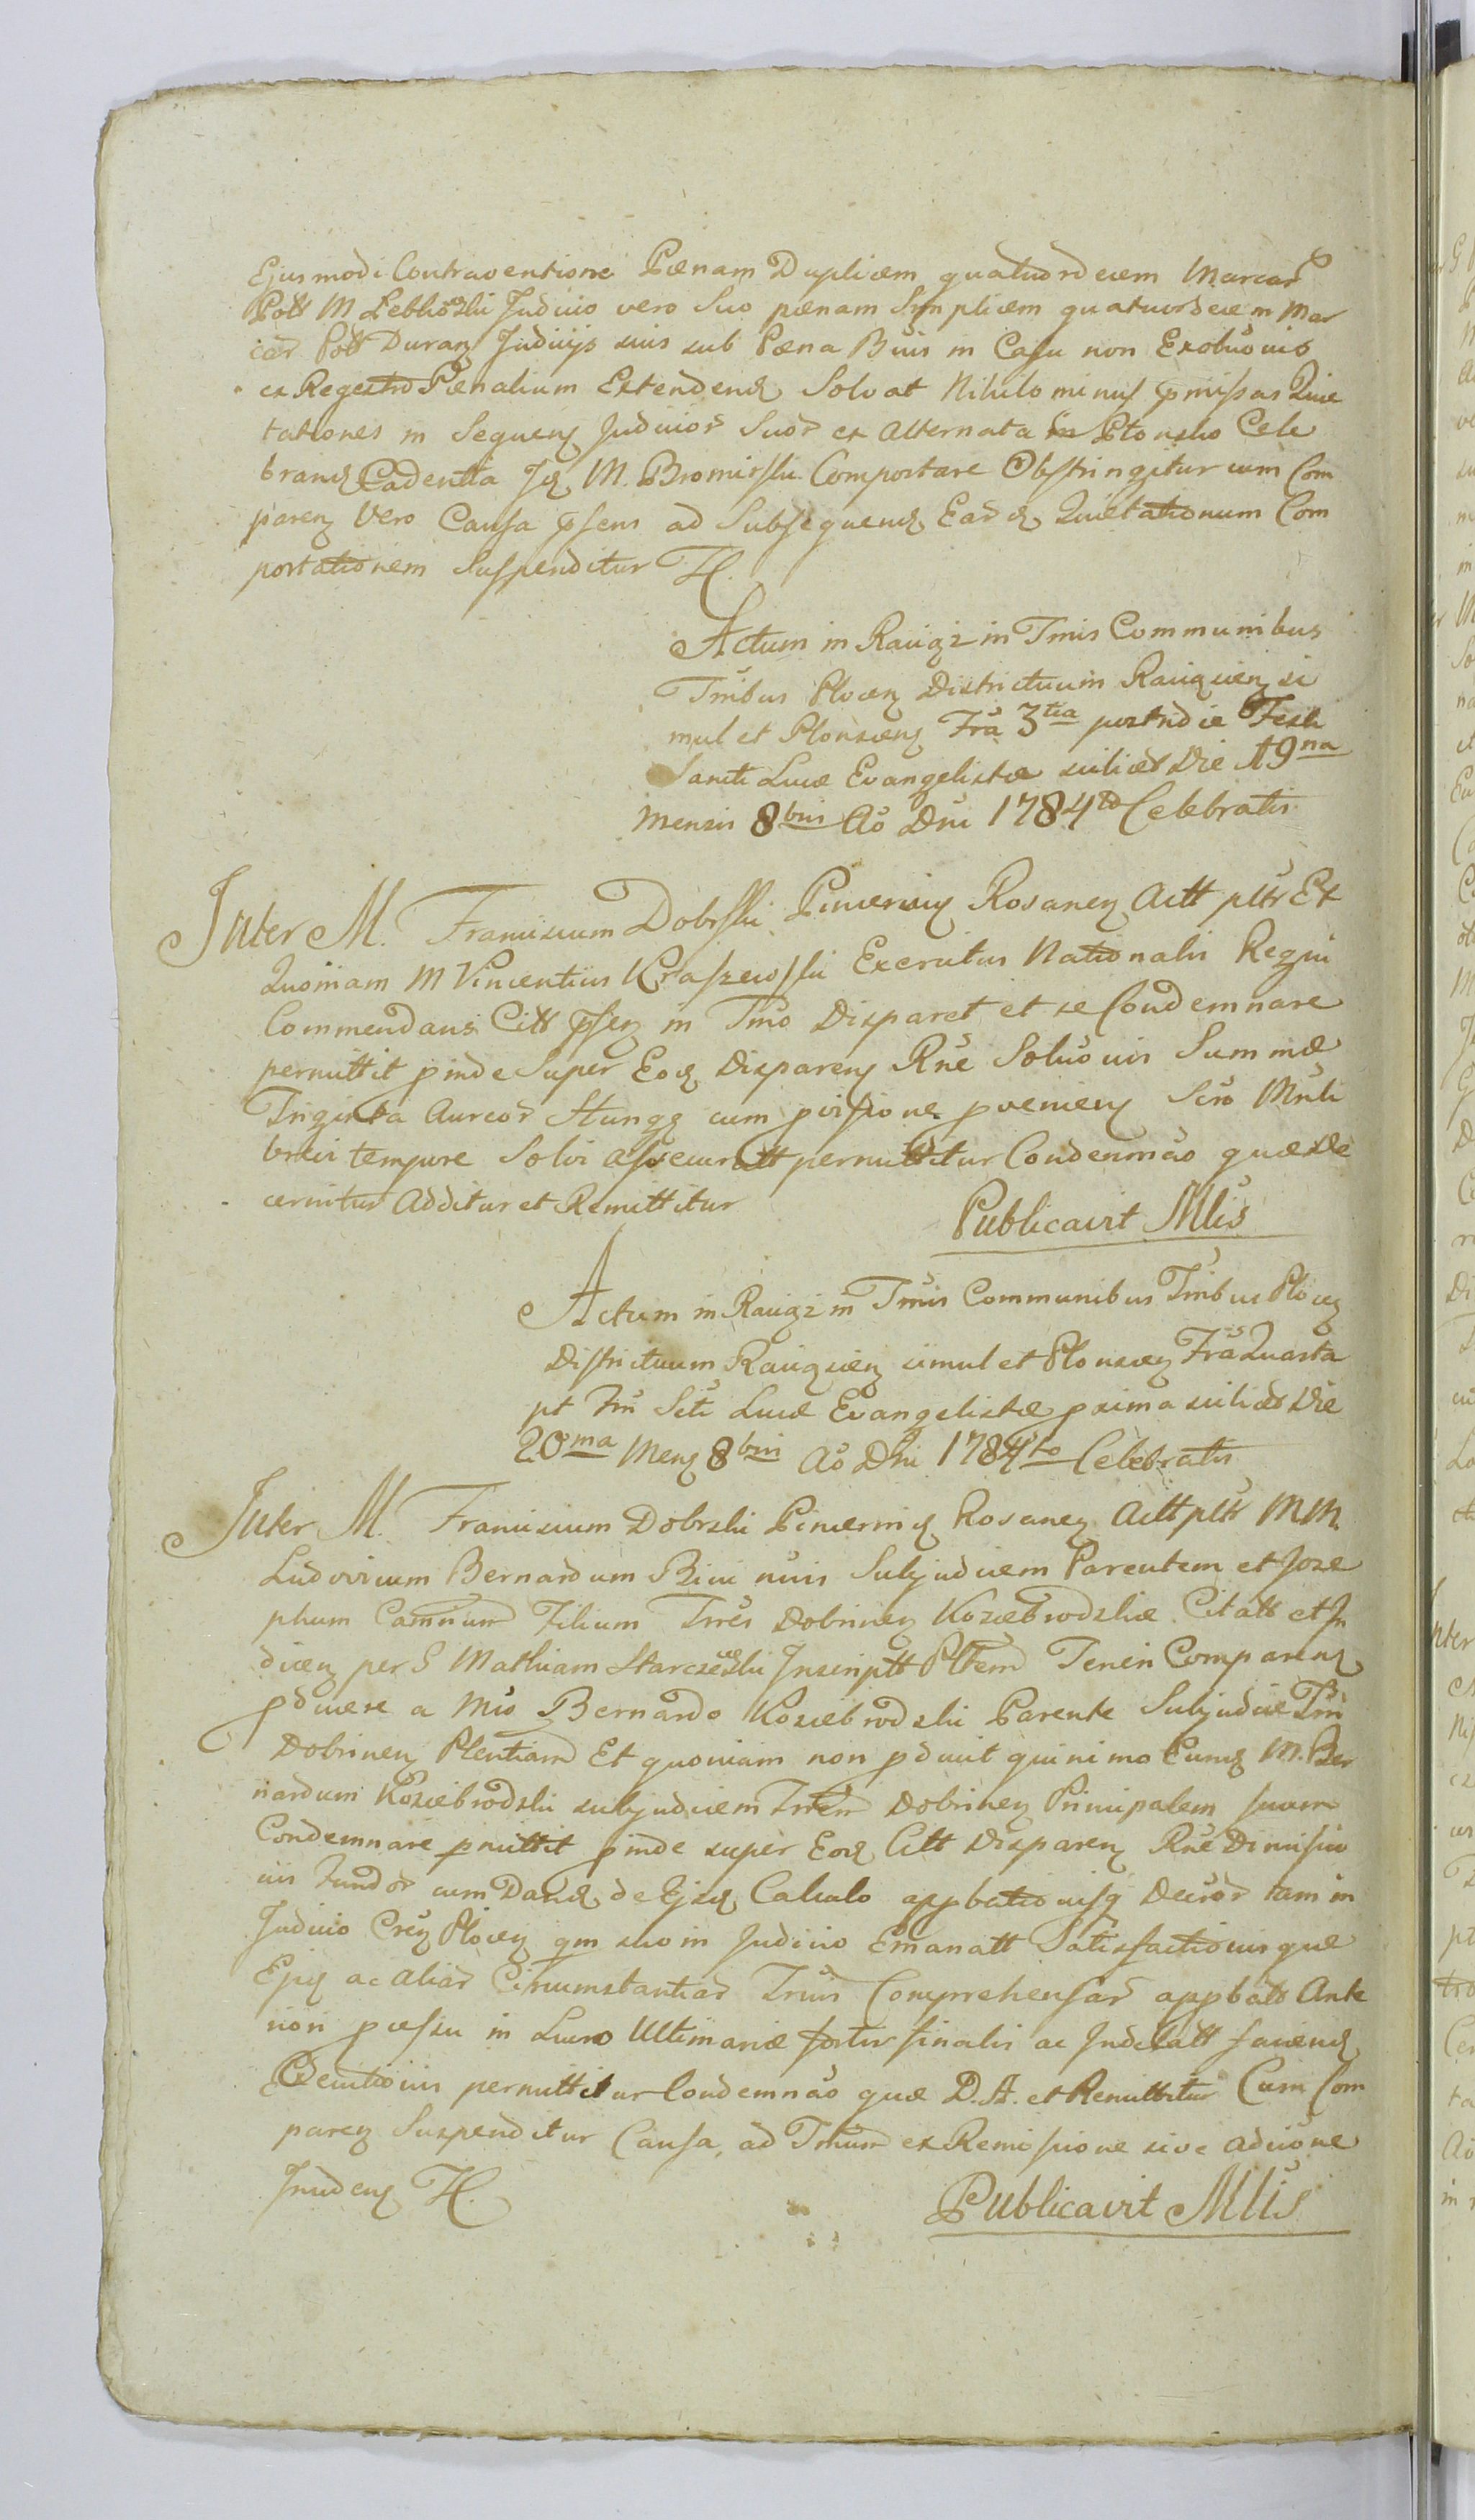 Ejusmodi Contraventione Pœnam Duplicem quatuordecem Marcar
Poll M Lebkowski Judicio vero Suo pœnam Simplicem quatuordecem Mar
car Poll Duran Judicijs suis sub Pœna Banis in Casu non Exolutionis
ex Regestro Pœnalium Extendend Solvat Nihilominus pmissas Quie
tationes in Sequen Judicior Suor ex Alternata in Plonsko Cele
brand Cadentia Id M. Bromirski Comportare Obstringitur cum Com
paren Vero Causa psens ad Subsequend Eard Quietationum Com
portationem Suspenditur H.
Actum in Raciąż in Tmis Communibus
Tribus Plocen Districtuum Raciązien si
mul et Plonscen Fra 3tia postridie Festi
Sancti Lucæ Evangelistæ scilicet Die 19na
Mensis 8bris Ao Dni 1784to Celebratis
Inter M. Franciscum Dobrski Pincernis Rosanen Actt pltr Et
Quoniam M Vincentius Kraszewski Exercitus Nationalis Regni
Commendans Citt psen in Tmo Disparet et se Condemnare
permittit pinde Super Eod Disparen Rne Solutionis Summæ
Triginta Aureor Hung cum pvisione pvenien Scro Mnli
brevi tempore Solvi assecuratt permittitur Condemnao quæ De
cernitur Additur et Remittitur
Publicavit Mlis
Actum in Raciąż in Tmis Communibus Tribus Plocen
Districtuum Raciązien simul et Plonscen Fra Quarta
pt Fm Scti Lucæ Evangelistæ pxima scilicet Die
20ma Mens 8bris Ao Dni 1784to Celebratis
Inter M. Franciscum Dobrski Pincernis Rosanen Actt pltr MM.
Ludovicum Bernardum Subjudicem Parentem et Jose
phum Filium Trres Dobrinen Koziebrodzkie Citatt et In
dicen per G Mathiam Starczewski Inscriptt Pltem Teneri Comparens
pducere a Mco Bernardo Koziebrodzki Parente Subjudice Trri
Dobrinen Plentiam Et quoniam non pduxit quinimo Eumd M. Ber
nardum Koziebrodzki subjudicem Trrem Dobrinen Principalem suum
Condemnare pmittit pinde super Eod Citt Disparen Rne Dimissio
nis Fundor cum Dand de Ejsd Calculo appbationisq Decror tam in
Judicio Cren Plocen qm suo in Judicio Emanatt Satisfactionisque
Ejsd ac aliar Circumstantiar Trmis Comprehensar appbatt Ante
riori pcessu in Lucro Ultimariæ fortis finalis ac Indelatt faciend
Exeutionis permittitur Condemnao quæ D. A. et Remittitur Cum Com
paren Suspenditur Causa, ad Tmum ex Remissione sive adcitione
Inciden H.
Publicavit Mlis